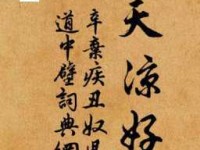 天涼好
辛棄疾丑奴
道中壁詞典